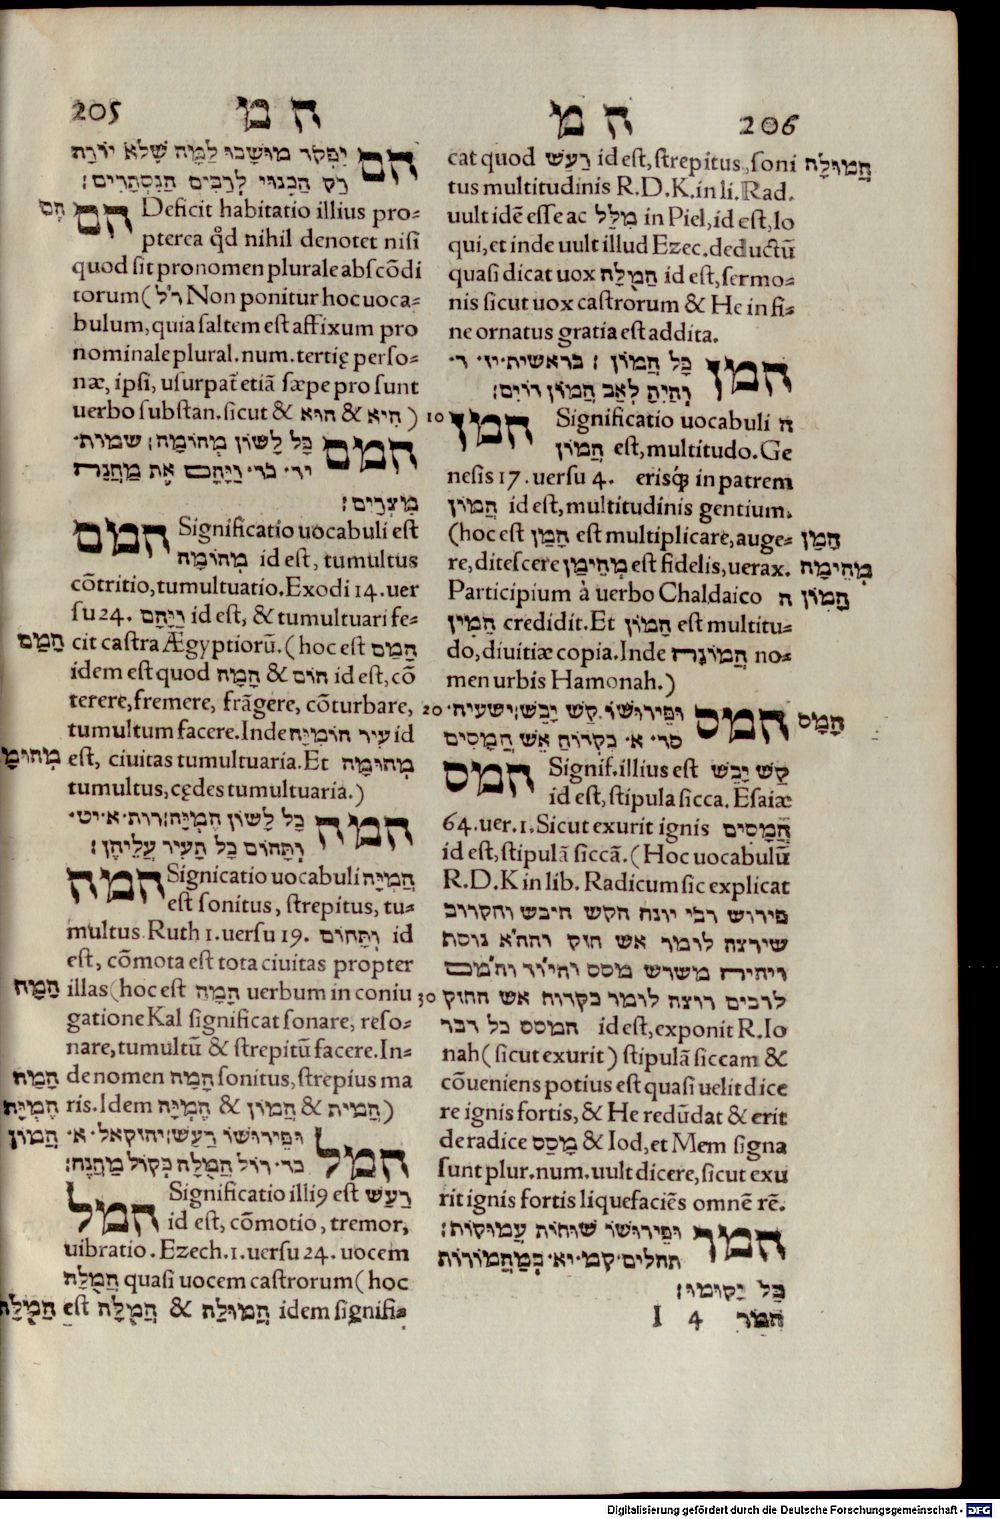 205 הם
הם יפקד מושבו למה שלא יורה
רק הכנוי לרבים הנסתרים:
הם
הם Deficit habitatio illius pro=
pterea qđ nihil denotet nisi
quod sit pronomen plurale abscõdi
torum (ר״ל Non ponitur hoc uoca=
bulum, quia saltem est affixum pro
nominale plural. num. tertię perso=
næ, ipsi, usurpat̃ etiã sæpe pro sunt
uerbo substan. sicut & הוא & היא)
המם כל לשון מהומה: שמות·
יד· כד· ויהם את מחנה
מצרים:
המם Significatio uocabuli est
מהומה id est, tumultus
cõtritio, tumultuatio. Exodi 14. uer
su 24. ויהם id est, & tumultuari fe=
המם cit castra Ægyptiorũ. (hoc est המם
idem est quod הום & המה id est, cõ
terere, fremere, frãgere, cõturbare,
tumultum facere. Inde עיר הומיה id
est, ciuitas tumultuaria. Et מהומה
tumultus, cędes tumultuaria.)
המה כל לשון המיה: רות· א· יט·
ותהום כל העיר עליהן:
המה Signicatio uocabuli המיה
est sonitus, strepitus, tu=
multus Ruth 1. uersu 19. ותהום id
est, cõmota est tota ciuitas propter
המה illas (hoc est המה uerbum in coniu
gatione Kal significat sonare, reso=
nare, tumultũ & strepitũ facere. In=
המה de nomen המה sonitus, strepius ma
המיה ris. Idem המיה & המון & המית)
המון
המל ופירושו רעש: יחזקאל· א·
כד· קול המלה כקול מחנה:
המל Significatio illi9 est רעש
id est, cõmotio, tremor,
uibratio. Ezech. 1. uersu 24. uocem
המלה quasi uocem castrorum (hoc
המלה est המלה & המולה idem signifi=
206 המ
cat quod רעש id est, strepitus, soni המולה
tus multitudinis R. D. K. in li. Rad.
uult idẽ esse ac מלל in Piel, id est, lo
qui, et inde uult illud Ezec. deductũ
quasi dicat uox המלה id est, sermo=
nis sicut uox castrorum & He in fi=
ne ornatus gratia est addita.
המן כל המון: בראשית· יז· ד·
והיית לאב המון גוים:
10 המן Significatio uocabuli ה
המון est, multitudo. Ge
nesis 17. uersu 4. erisq́; in patrem
המון id est, multitudinis gentium.
(hoc est המן est multiplicare, auge= המן
re, ditescere מהימן est fidelis, uerax. מהימה
Participium à uerbo Chaldaico ה המון
המין credidit. Et המון est multitu=
do, diuitiæ copia. Inde המונה no=
men urbis Hamonah.)
20 המס ופירושו קש יבש: ישעיה· המס
סד· א· כקדוח אש המסים
המס Signif. illius est קש יבש
id est, stipula sicca. Esaiæ
64. uer. 1. Sicut exurit ignis המסים
id est, stipulã siccã. (Hoc uocabulũ
R. D. K in lib. Radicum sic explicat
פירוש רבי יונה הקש היבש והקרוב
שירצה לומר אש חזק וההא נוסף
ויהיה משרש מסס והיוד והמם
30 לרבים רוצה לומר כקדוח אש החזק
הממס כל דבר id est, exponit R. Io
nah (sicut exurit) stipulã siccam &
cõueniens potius est quasi uelit dice
re ignis fortis, & He redũdat & erit
de radice מסס & Iod, et Mem signa
sunt plur. num. uult dicere, sicut exu
rit ignis fortis liquefaciẽs omnẽ rẽ.
המר ופירושו שוחות עמוקות:
תהלים· קמ· יא· במהמורות
בל יקומו:
I 4 המר